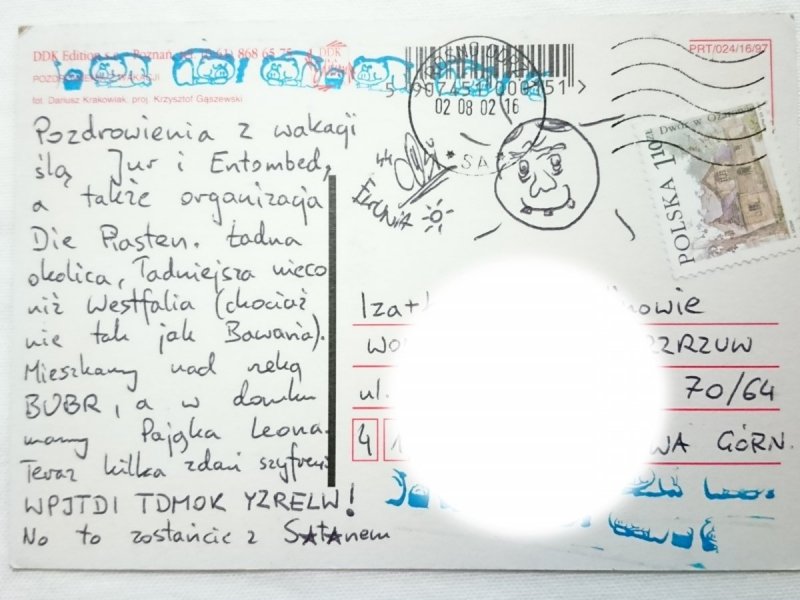 DDK Edition s.c. Poznań, tel. (0-61) 868 65 75
PRT/024/16/97
fot. Dariusz Krakowiak, proj. Krzysztof Gąszewski
5 907451 000451 >
02 08 02 16
* SA
POLSKA 1 10 zł
Pozdrowienia z wakacji
ślą Jur i Entombed,
a także organizacja
Die Piasten. Ładna
okolica, ładniejsza nieco
niż Westfalia (chociaż
nie tak jak Bawaria).
Mieszkamy nad rzeką
BUBR, a w domku
mamy Pająka Leona.
Teraz kilka zdań szyfrem
WPJTDI TDMOK YZRELW!
No to zostańcie z SATAnem
EWUNIA
Iza+ nowie
WO ZZRZUW
ul. 70/64
4 1 WA GÓRN.